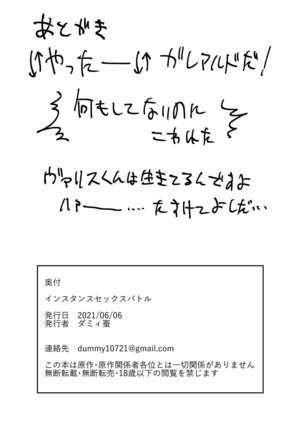 あとがき
↓↑やったー↓↑ ガレアルドだ！
何もしてないのに
こわれた
ヴァリスくんは生きてるんですよ
ハァー……たすけてよしだ…
奥付
インスタンスセックスバトル
発行日　2021/06/06
発行者　ダミィ蛋
連絡先　dummy10721@gmail.com
この本は原作・原作関係者各位とは一切関係がありません
無断転載・無断転売・18歳以下の閲覧を禁じます